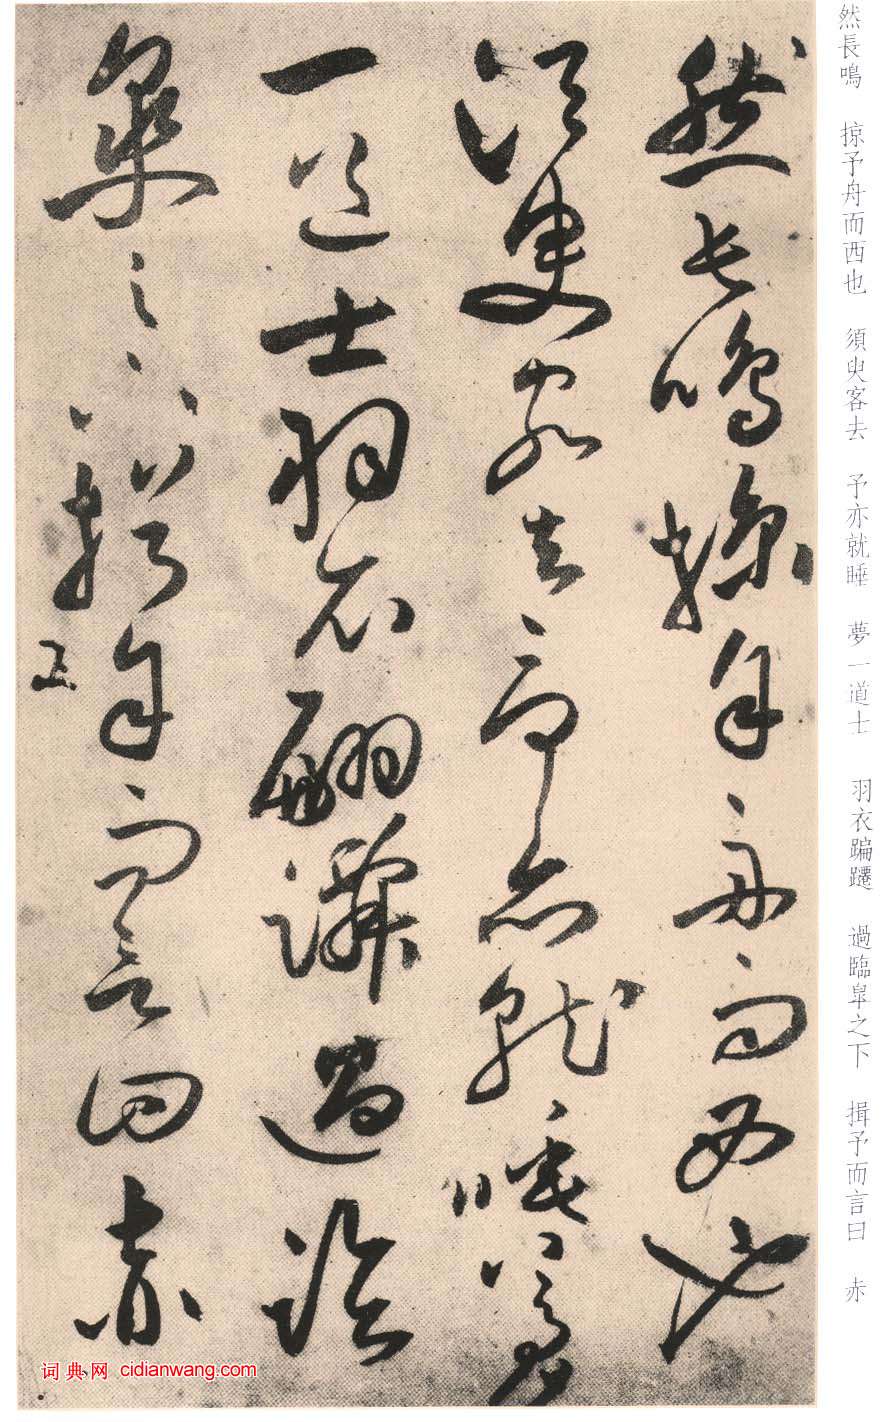 然長鳴 掠予舟而西也 須臾客去 予亦就睡 夢一道士 羽衣蹁躚 過臨皐之下 揖予而言曰 赤
然長鳴掠予舟而西也
須臾客去予亦就睡夢
一道士羽衣翩躚過臨
皐之下揖予而言曰赤
词典网 cidianwang.com